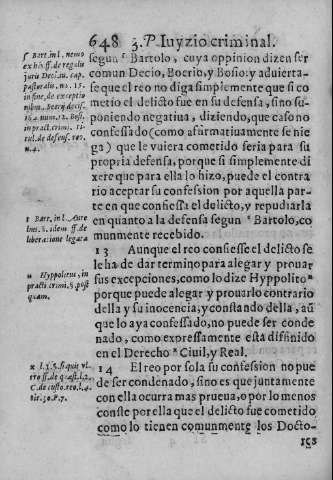 648 3. P. Iuyzio criminal.
segun ˢ Bartolo, cuya oppinion dizen ser
comun Decio, Bocrio, y Bosio: y aduierta-
se que el reo no diga simplemente que si co
metio el delicto fue en su defensa, sino su-
poniendo negatiua, diziendo, que caso no
confessado (como afirmatiuamente se nie
ga) que le vuiera cometido seria para su
propria defensa, porque si simplemente di
xere que para ella lo hizo, puede el contra
rio aceptar su confession por aquella par-
te en que confiessa el delicto, y repudiarla
en quanto a la defensa segun ᵗ Bartolo, co
munmente recebido.
13 Aunque el reo confiesse el delicto se
le ha de dar termino para alegar y prouar
sus excepciones, como lo dize Hyppolito ᵘ
porque puede alegar y prouar lo contrario
della y su inocencia, y constando della, aũ
que lo aya confessado, no puede ser conde
nado, como expressamente está difinido
en el Derecho ˣ Ciuil, y Real.
14 El reo por sola su confession no pue
de ser condenado, sino es que juntamente
con ella ocurra mas prueua, o por lo menos
conste por ella que el delicto fue cometido
como lo tienen comunmente los Docto-
res
s Bart. in l. nemo
ex his ff. de regulis
juris
in fine, de exceptio
nibus.
in pract. crimi.
n. 4.
t Bart. in l. Aure
lius. §. idem ff. de
liberatione legata
u Hyppolitus, in
practi. crimi. § post
quam.
x l. 1. §. si quis vl-
tro ff. de quæst. l. 2.
C. de custo. reo. l. 4.
tit. 30. P. 7.